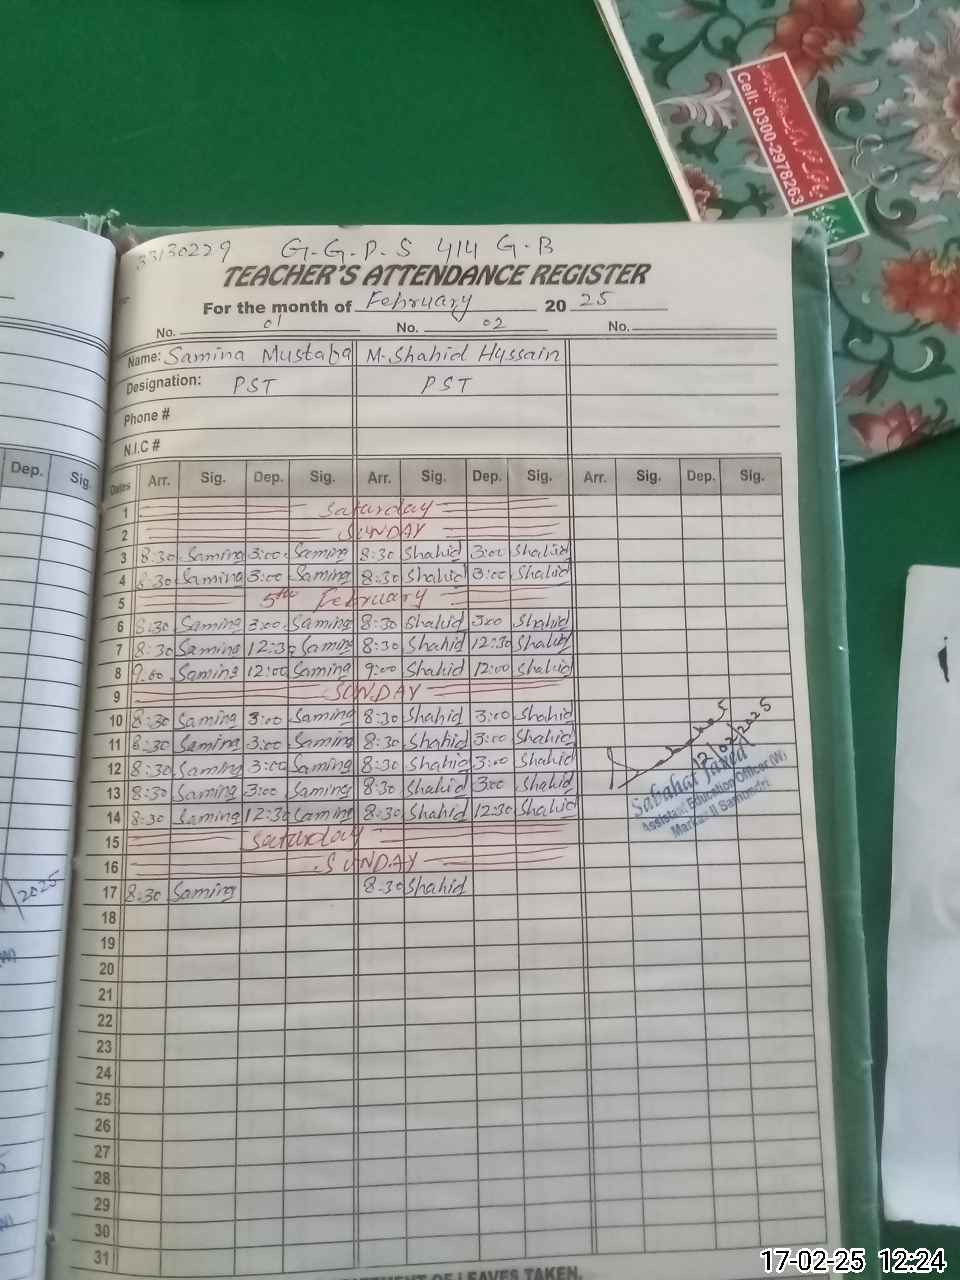 Cell: 0300-2978263
33130229 G.G.P.S 414 G-B
TEACHER'S ATTENDANCE REGISTER
For the month of February 20 25
No. 01 No. 02 No.
Name: Samina Mustaba M.Shahid Hussain
Designation: PST PST
Phone #
N.I.C #
Dep. Sig.
Dates Arr. Sig. Dep. Sig. Arr. Sig. Dep. Sig. Arr. Sig. Dep. Sig.
1 Saturday
2 SUNDAY
3 8:30 Samina 3:00 Samina 8:30 Shahid 3:00 Shahid
4 8:30 Samina 3:00 Samina 8:30 Shahid 3:00 Shahid
5 5th February
6 8:30 Samina 3:00 Samina 8:30 Shahid 3:00 Shahid
7 8:30 Samina 12:30 Samina 8:30 Shahid 12:30 Shahid
8 9:00 Samina 12:00 Samina 9:00 Shahid 12:00 Shahid
9 SUNDAY
10 8:30 Samina 3:00 Samina 8:30 Shahid 3:00 Shahid
11 8:30 Samina 3:00 Samina 8:30 Shahid 3:00 Shahid
12 8:30 Samina 3:00 Samina 8:30 Shahid 3:00 Shahid
13 8:30 Samina 3:00 Samina 8:30 Shahid 3:00 Shahid
14 8:30 Samina 12:30 Samina 8:30 Shahid 12:30 Shahid
12/02/2025
Sabahat Javed
Assistant Education Officer (W)
Samundri
15 Saturday
16 SUNDAY
2025
17 8:30 Samina 8:30 Shahid
18
19
20
21
22
23
24
25
26
27
28
29
30
31
OF LEAVES TAKEN.
17-02-25 12:24